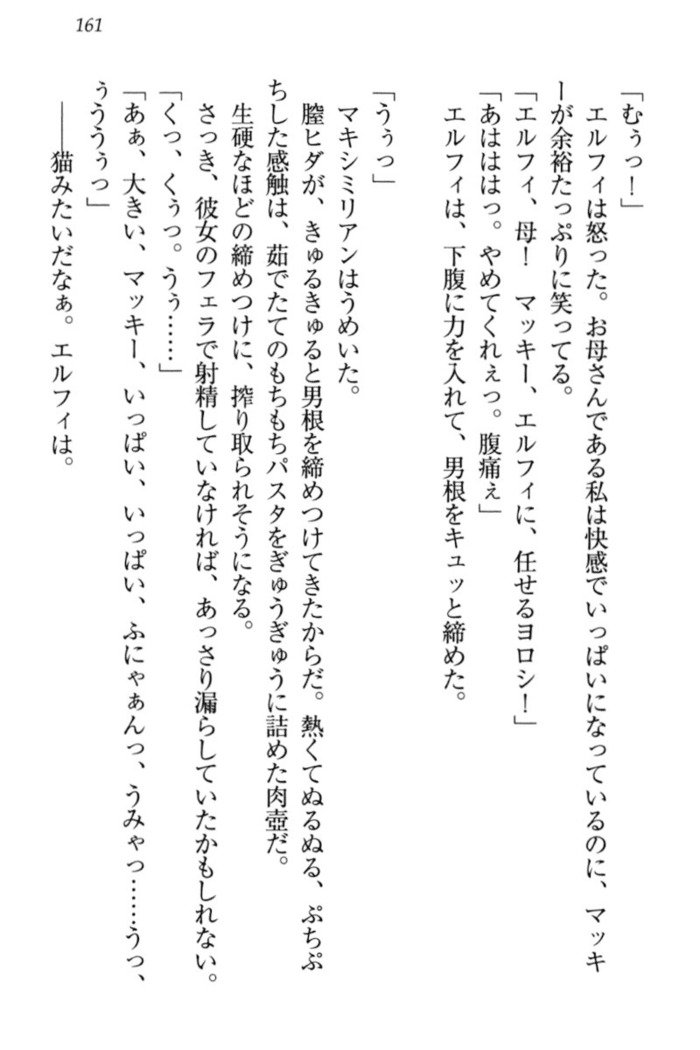 161
「むぅっ！」
エルフィは怒った。お母さんである私は快感でいっぱいになっているのに、マッキ
ーが余裕たっぷりに笑ってる。
「エルフィ、母！　マッキー、エルフィに、任せるヨロシ！」
「あはははっ。やめてくれぇっ。腹痛ぇ」
エルフィは、下腹に力を入れて、男根をキュッと締めた。
「うぅっ」
マキシミリアンはうめいた。
膣ヒダが、きゅるきゅると男根を締めつけてきたからだ。熱くてぬるぬる、ぷちぷ
ちした感触は、茹でたてのもちもちパスタをぎゅうぎゅうに詰めた肉壺だ。
生硬なほどの締めつけに、搾り取られそうになる。
さっき、彼女のフェラで射精していなければ、あっさり漏らしていたかもしれない。
「くっ、くぅっ。うぅ……」
「あぁ、大きい、マッキー、いっぱい、いっぱい、ふにゃぁんっ、うみゃっ……うっ、
ぅううぅっ」
――猫みたいだなぁ。エルフィは。